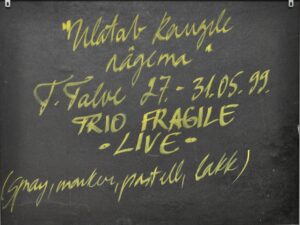 "Ulatab kaugele
nägema"
T. Talve 27. - 31.05.99.
TRIO FRAGILE
- LIVE -
(Spray, marker, pastell, lakk)